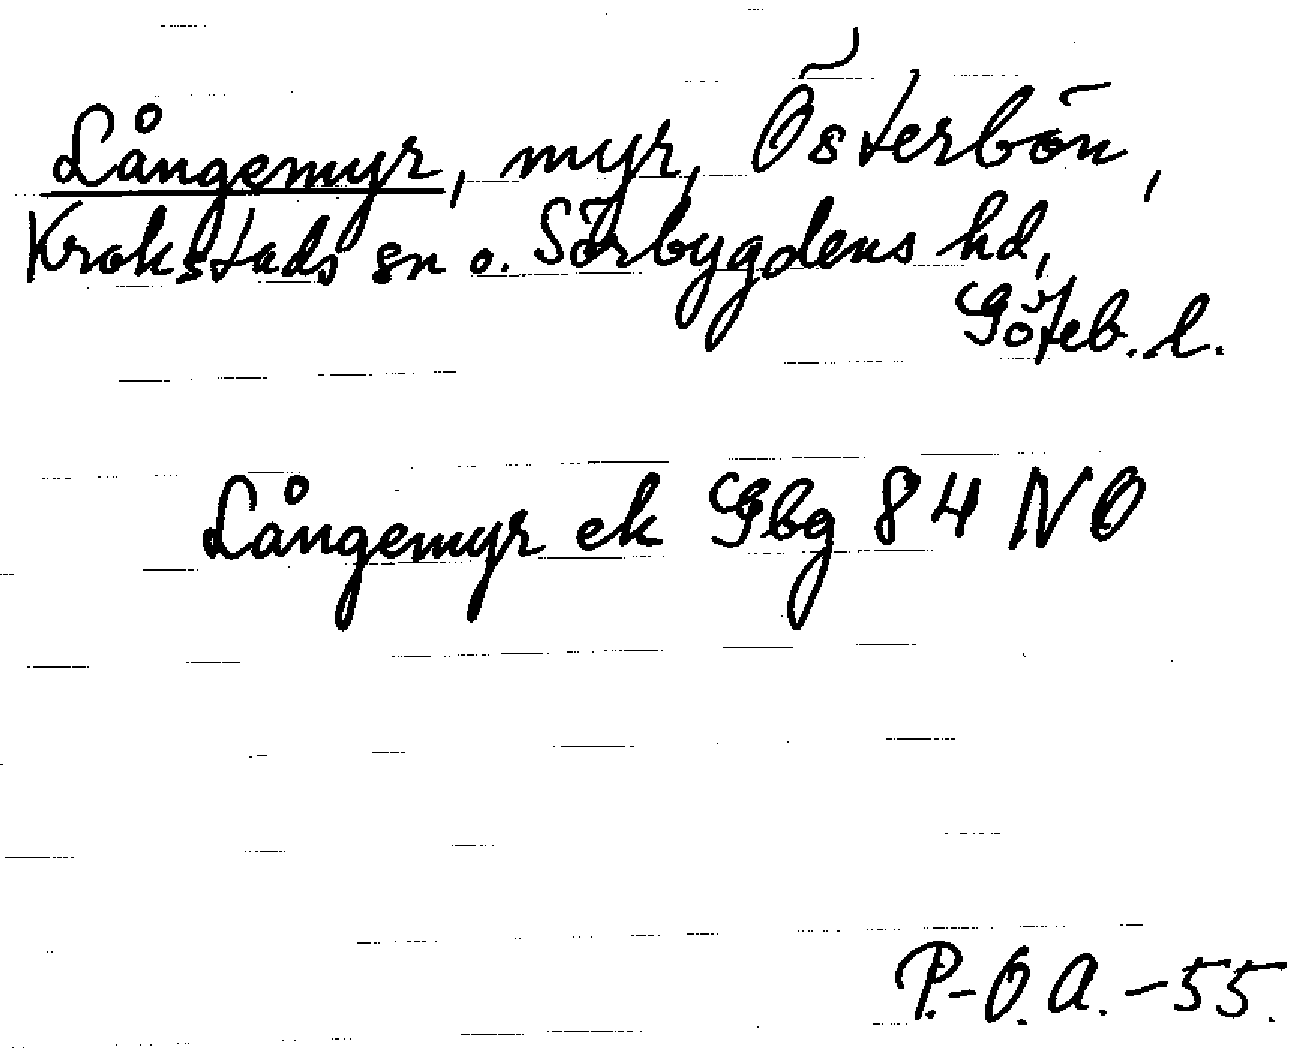 Långemyr, myr, Österbön,
Krokstads sn o. Sörbygdens hd,
Göteb. l.
Långemyr ek Gbg 84 NO
P.-O.A.-55.